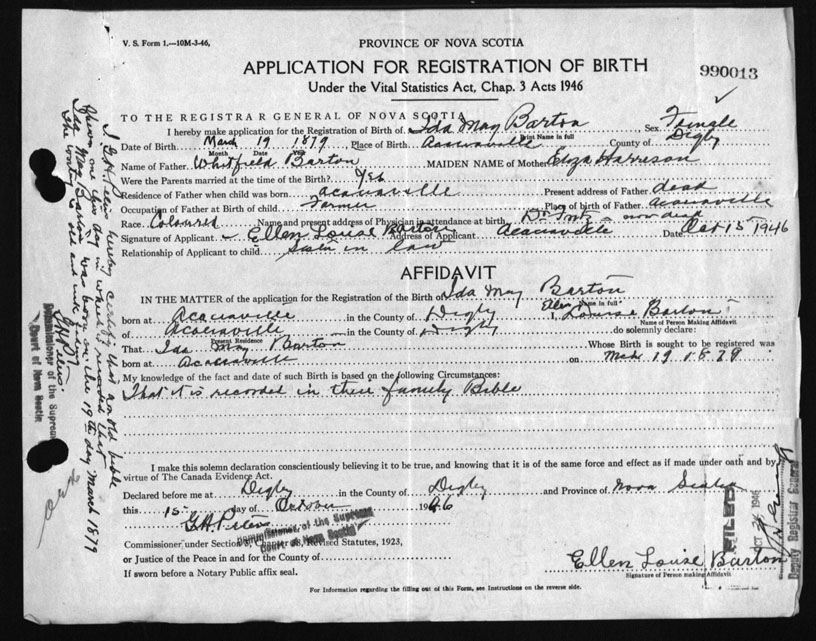 V. S. Form 1.—10M-3-46,
PROVINCE OF NOVA SCOTIA
APPLICATION FOR REGISTRATION OF BIRTH
990013
Under the Vital Statistics Act, Chap. 3 Acts 1946
TO THE REGISTRAR GENERAL OF NOVA SCOTIA
I hereby make application for the Registration of Birth of Ida May Barton Sex Female
Print Name in full
Date of Birth March 19 1879, Place of Birth Acaciaville County of Digby
Month Date Year
Name of Father Whitfield Barton MAIDEN NAME of Mother Eliza Harrison
Were the Parents married at the time of the Birth? Yes
Residence of Father when child was born Acaciaville Present address of Father dead
Occupation of Father at Birth of child Farmer Place of birth of Father Acaciaville
Race Coloured Name and present address of Physician in attendance at birth Dr. now dead
Signature of Applicant Ellen Louise Barton Address of Applicant Acaciaville Date Oct 15 1946
Relationship of Applicant to child in law
AFFIDAVIT
IN THE MATTER of the application for the Registration of the Birth of Ida May Barton
Name in full
born at Acaciaville in the County of Digby I, Ellen Louise Barton
Name of Person Making Affidavit
of Acaciaville in the County of Digby do solemnly declare:
Present Residence
That Ida May Barton Whose Birth is sought to be registered was
born at Acaciaville on Mch 19 1879
My knowledge of the fact and date of such Birth is based on the following Circumstances:
That it is recorded in their family Bible
I make this solemn declaration conscientiously believing it to be true, and knowing that it is of the same force and effect as if made under oath and by
virtue of The Canada Evidence Act.
Declared before me at Digby in the County of Digby and Province of Nova Scotia
this 15 day of October 1946
G.H. Peters
Commissioner of the Supreme
Court of Nova Scotia
Commissioner under Section 3, Chapter 38, Revised Statutes, 1923,
or Justice of the Peace in and for the County of
If sworn before a Notary Public affix seal.
Ellen Louise Barton
Signature of Person making Affidavit
For Information regarding the filling out of this Form, see Instructions on the reverse side.
FILED
OCT 24 1946
Deputy Registrar General
I G.H. Peters hereby certify that an old bible
shown me this day in which is recorded that
Ida May Barton was born on the 19th day March 1879
G.H. Peters
Commissioner of the Supreme
Court of Nova Scotia